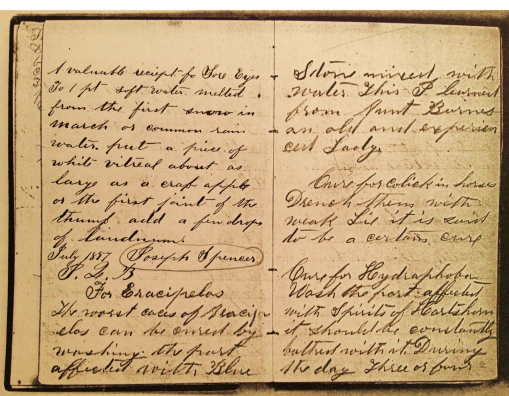 A valuable reciept fo Sore Eyes
To 1 pt soft water melted
from the first snow in
march or common rain
water put a piece of
white vitreal about as
large as a crab apple
or the first joint of the
thumb add a few drops
of laudnum.
July 1887 Joseph Spencer
For Eracipelas
The worst cases of Eracip
elas can be cured by
washing the part
affected with Blue
Stone mixed with
water This I learned
from Aunt Burnes
an old and experien
ced Lady.
Cure for colick in horses
Drench them with
weak Lie it is said
to be a certain cure
Cure for Hydraphoba
Wash the part affected
with Spirits of Hartshorn
it should be constantly
bathed with it During
the day Three or four